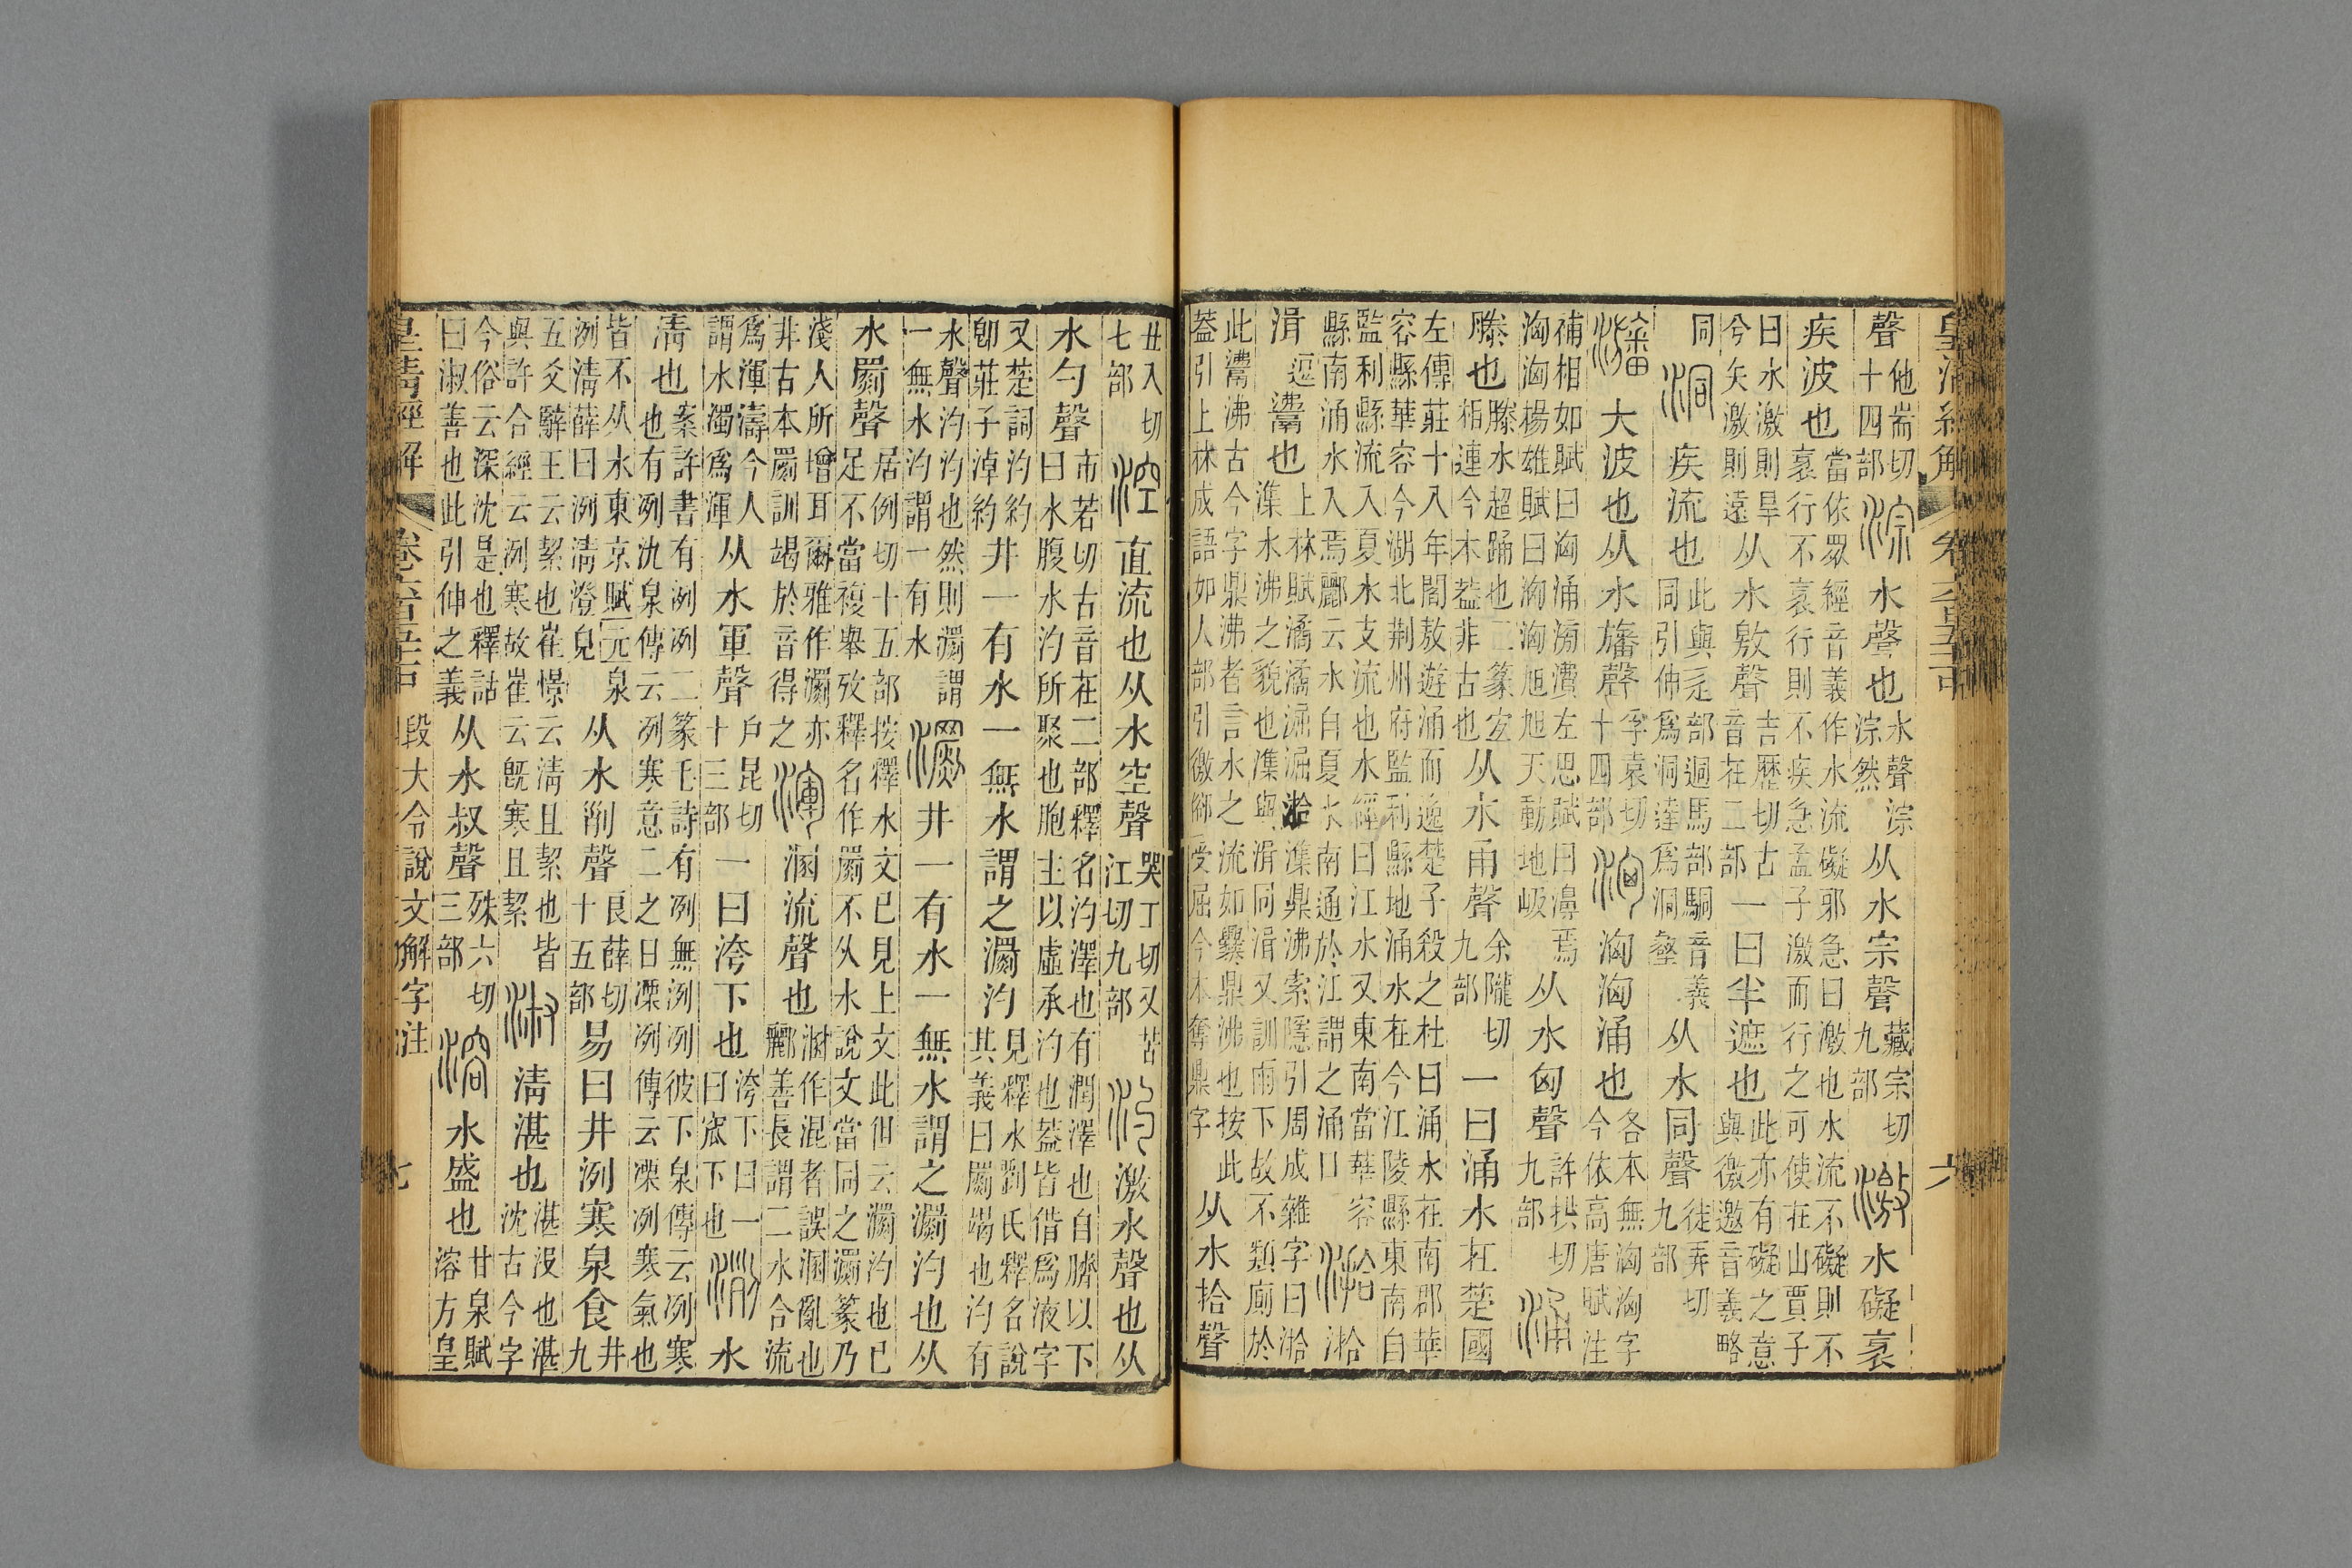 聲他耑切十四部淙水聲也水聲淙淙然从水宗聲藏宗切九部激水礙衺
疾波也當依眾經音義作水流礙邪急曰激也水流不礙則不衺行不衺行則不疾急孟子激而行之可使在山賈子
曰水激則旱兮矢激則遠从水敫聲吉歷切古音在二部一曰半遮也此亦有礙之意與徼邀音義略
同洞疾流也此與辵部迵馬部駧音義同引伸爲洞達爲洞壑从水同聲徒弄切九部
大波也从水旛聲孚袁切十四部洶洶涌也各本無洶洶字今依高唐賦注
補相如賦曰洶涌滂㵒左思賦曰濞焉洶洶楊雄賦曰洶洶旭旭天動地岋从水匈聲許拱切九部涌
滕也滕水超踊也二篆宏栢連今本葢非古也从水甬聲余隴切九部一曰涌水在楚國
左傳莊十八年閻敖遊涌而逸楚子殺之杜曰涌水在南郡華容縣華容今湖北荆州府監利縣地涌水在今江陵縣東南自
監利縣流入夏水支流也水經曰江水又東南當華容縣南涌水入焉酈云水自夏水南通於江謂之涌口湁湁
湒逗灊也上林賦潏潏淈淈湁潗鼎沸索隱引周成雜字曰湁潗水沸之貌也潗與湒同湒又訓雨下故不類廁於
此灊沸古今字鼎沸者言水之流如爨鼎沸也按此葢引上林成語如人部引徼𠊓受屈今本奪鼎字从水拾聲
丑入切七部涳直流也从水空聲哭工切又苦江切九部汋激水聲也从
水勺聲市若切古音在二部釋名汋澤也有潤澤也自臍以下曰水腹水汋所聚也胞主以虛承汋也葢皆借爲液字
又楚詞汋約卽莊子淖約井一有水一無水謂之瀱汋見釋水劉氏釋名說其義曰瀱竭也汋有
水聲汋汋也然則瀱謂一無水汋謂一有水瀱井一有水一無水謂之瀱汋也从
水罽聲居例切十五部按釋水文已見上文此但云瀱汋也已足不當複舉攷釋名作罽不从水說文當同之瀱篆乃
淺人所增耳爾雅作瀱亦非古本罽訓竭於音得之渾溷流聲也溷作混者誤溷亂也酈善長謂二水合流
爲渾濤今人謂水濁爲渾从水軍聲戶昆切十三部一曰洿下也洿下曰一曰窊下也洌水
淸也案許書有洌冽二篆毛詩有冽無洌冽彼下泉傳云冽寒也有冽氿泉傳云冽寒意二之日凓冽傳云凓冽寒氣也
皆不从水東京賦元泉洌淸薛曰洌淸澄皃从水𠛱聲良薛切十五部易曰井洌寒泉食井九
五爻辭王云絜也崔憬云淸且絜也皆與許合經云洌寒故崔云旣寒且絜淑淸湛也湛没也湛沈古今字
今俗云深沈是也釋詁曰淑善也此引伸之義从水叔聲殊六切三部溶水盛也甘泉賦溶方皇
皇淸經解
段大令說文解字注
七
六